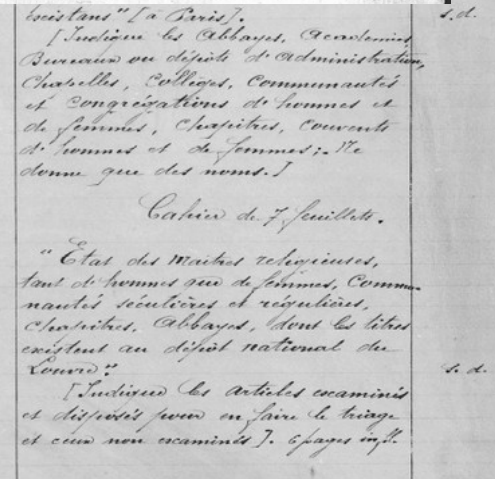 existans" [à Paris].
s.d.
[Indique les Abbayes, Academies,
Bureaux ou dépôts d'administration,
Chapelles, Collèges, Communautés
et Congrégations d'hommes et
de femmes, Chapitres, Couvents
d'hommes et de femmes; Ne
donne que des noms.]
Cahier de 7 feuillets.
"Etat des Maitres religieuses,
tant d'hommes que de femmes, Commu-
nautés séculières et régulières,
Chapitres, Abbayes, dont les titres
existent au dépôt national du
Louvre."
s. d.
[Indique les articles examinés
et disposés pour en faire le triage
et ceux non examinés]. 6 pages in f°.